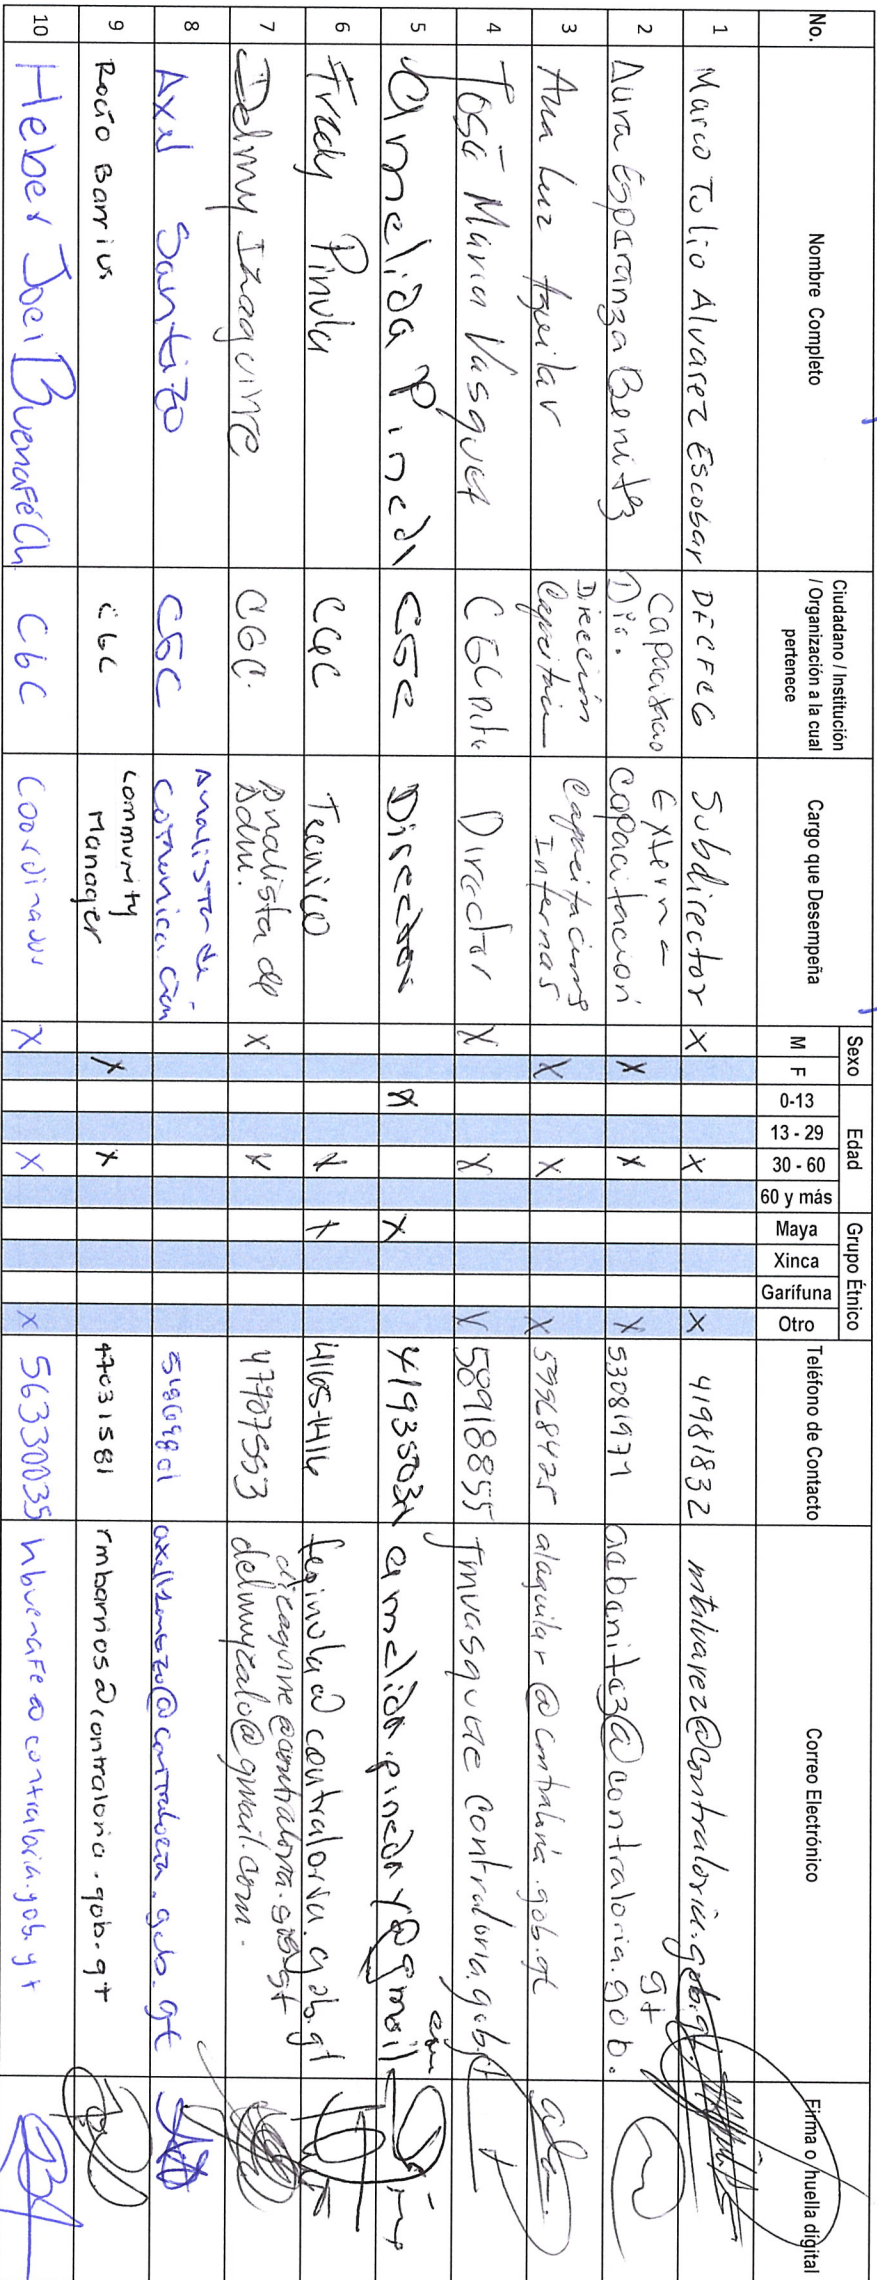 No. Nombre Completo Ciudadano / Institución / Organización a la cual pertenece Cargo que Desempeña Sexo Edad Grupo Étnico Teléfono de Contacto Correo Electrónico Firma o huella digital
M F 0-13 13 - 29 30 - 60 60 y más Maya Xinca Garífuna Otro
1 Marco Tulio Alvarez Escobar DECFCG Subdirector X X X 41981832 mtalvarez@contraloria.gob.gt.
2 Aura Esparanza Benitez Dir. Capacitacion Externa X X X 53081971 aebenitez@contraloria.gob.gt
3 Ana Luz Aguilar Dirección Capacitacion Capacitacions Internas X X X 59968425 alaguilar@contraloria.gob.gt
4 José Maria Vasquez CGC Director X X X 58918855 jmvasquez contraloria.gob.gt
5 Amelida Pineda CGC Direccion X X 41935034 amelida.pineda.y@gmail.com
6 Fredy Pinula CGC Tecnico X X 4165-1416 fepinula@contraloria.gob.gt
7 Delmy Izaguirre CGC. Analista de Admu. X X 47907553 dizaguirre@contraloria.gob.gt delmyzalo@gmail.com.
8 Axel Santizo CGC Analista de Comunicación 51869801 @contraloria.gob.gt
9 Rocío Barrios CGC Community Manager X X 47031581 rmbarrios@contraloria.gob.gt
10 Heber Joel Buenafé Ch. CGC Coordinador X X X 56330035 hbuenafe@contraloria.gob.gt